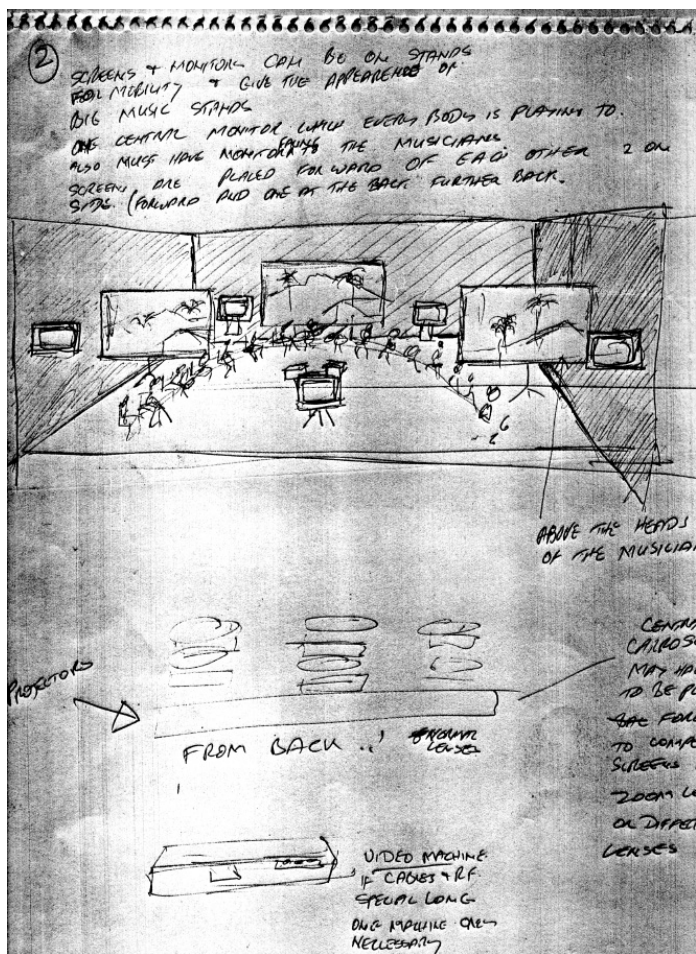 2
SCREENS + MONITORS CAN BE ON STANDS
FOR MOBILITY + GIVE THE APPEARENCE OF
BIG MUSIC STANDS
ONE CENTRAL MONITOR WHICH EVERY BODY IS PLAYING TO.
ALSO MUST HAVE MONITORS FACING THE MUSICIANS.
SCREENS ARE PLACED FORWARD OF EACH OTHER 2 ON
SIDE. (FORWARD AND ONE AT THE BACK FURTHER BACK.
ABOVE THE HEADS
OF THE MUSICIA
PROJECTORS
CENTR
CARROS
MAY HA
TO BE P
FOR
TO COMPE
SCREENS
ZOOM LE
OR DIFFE
LENSES
FROM BACK
NORMAL
LENSES
VIDEO MACHINE
IF CABLES + RF
SPECIAL LONG
ONE MACHINE ONLY
NECCESSARY